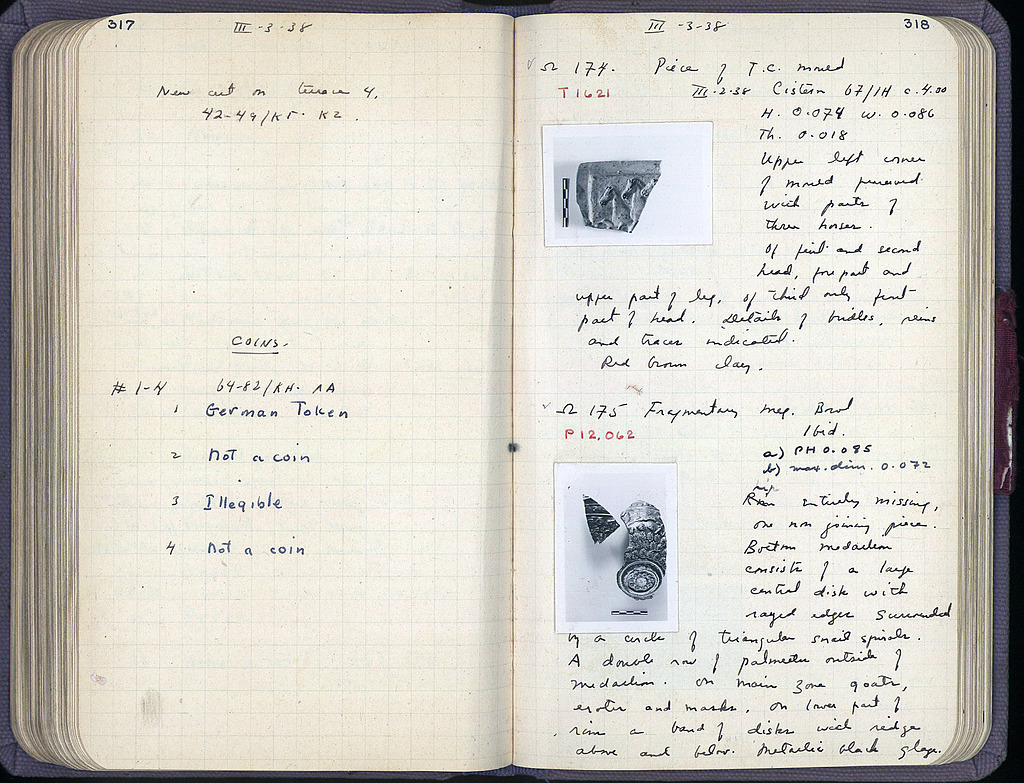 317
III -3-38
New cut on terrace 4.
42-49/ΚΓ-ΚΖ.
COINS.
#1-4 64-82/ΚΗ-ΛΑ
1 German Token
2 Not a coin
3 Illegible
4 Not a coin
III -3-38
318
Ω 174. Piece of T.C. mould
T1621
III-2-38 Cistern 67/ΙΗ c. 4.00
H. 0.074 W. 0.086
Th. 0.018
Upper left corner
of mould preserved
with parts of
three horses.
Of first and second
head, forepart and
upper part of leg, of third only front
part of head. Details of bridles, reins
and traces indicated.
Red brown clay.
Ω 175 Fragmentary Meg. Bowl
P12,062
Ibid.
a) PH 0.085
b) max. dim. 0.072
Rim entirely missing,
one non joining piece.
Bottom medallion
consists of a large
central disk with
rayed edges surrounded
by a circle of triangular small spirals.
A double row of palmettes outside of
medallion. On main zone goats,
erotes and masks, on lower part of
rim a band of disks with ridge
above and below. Metallic black glaze.